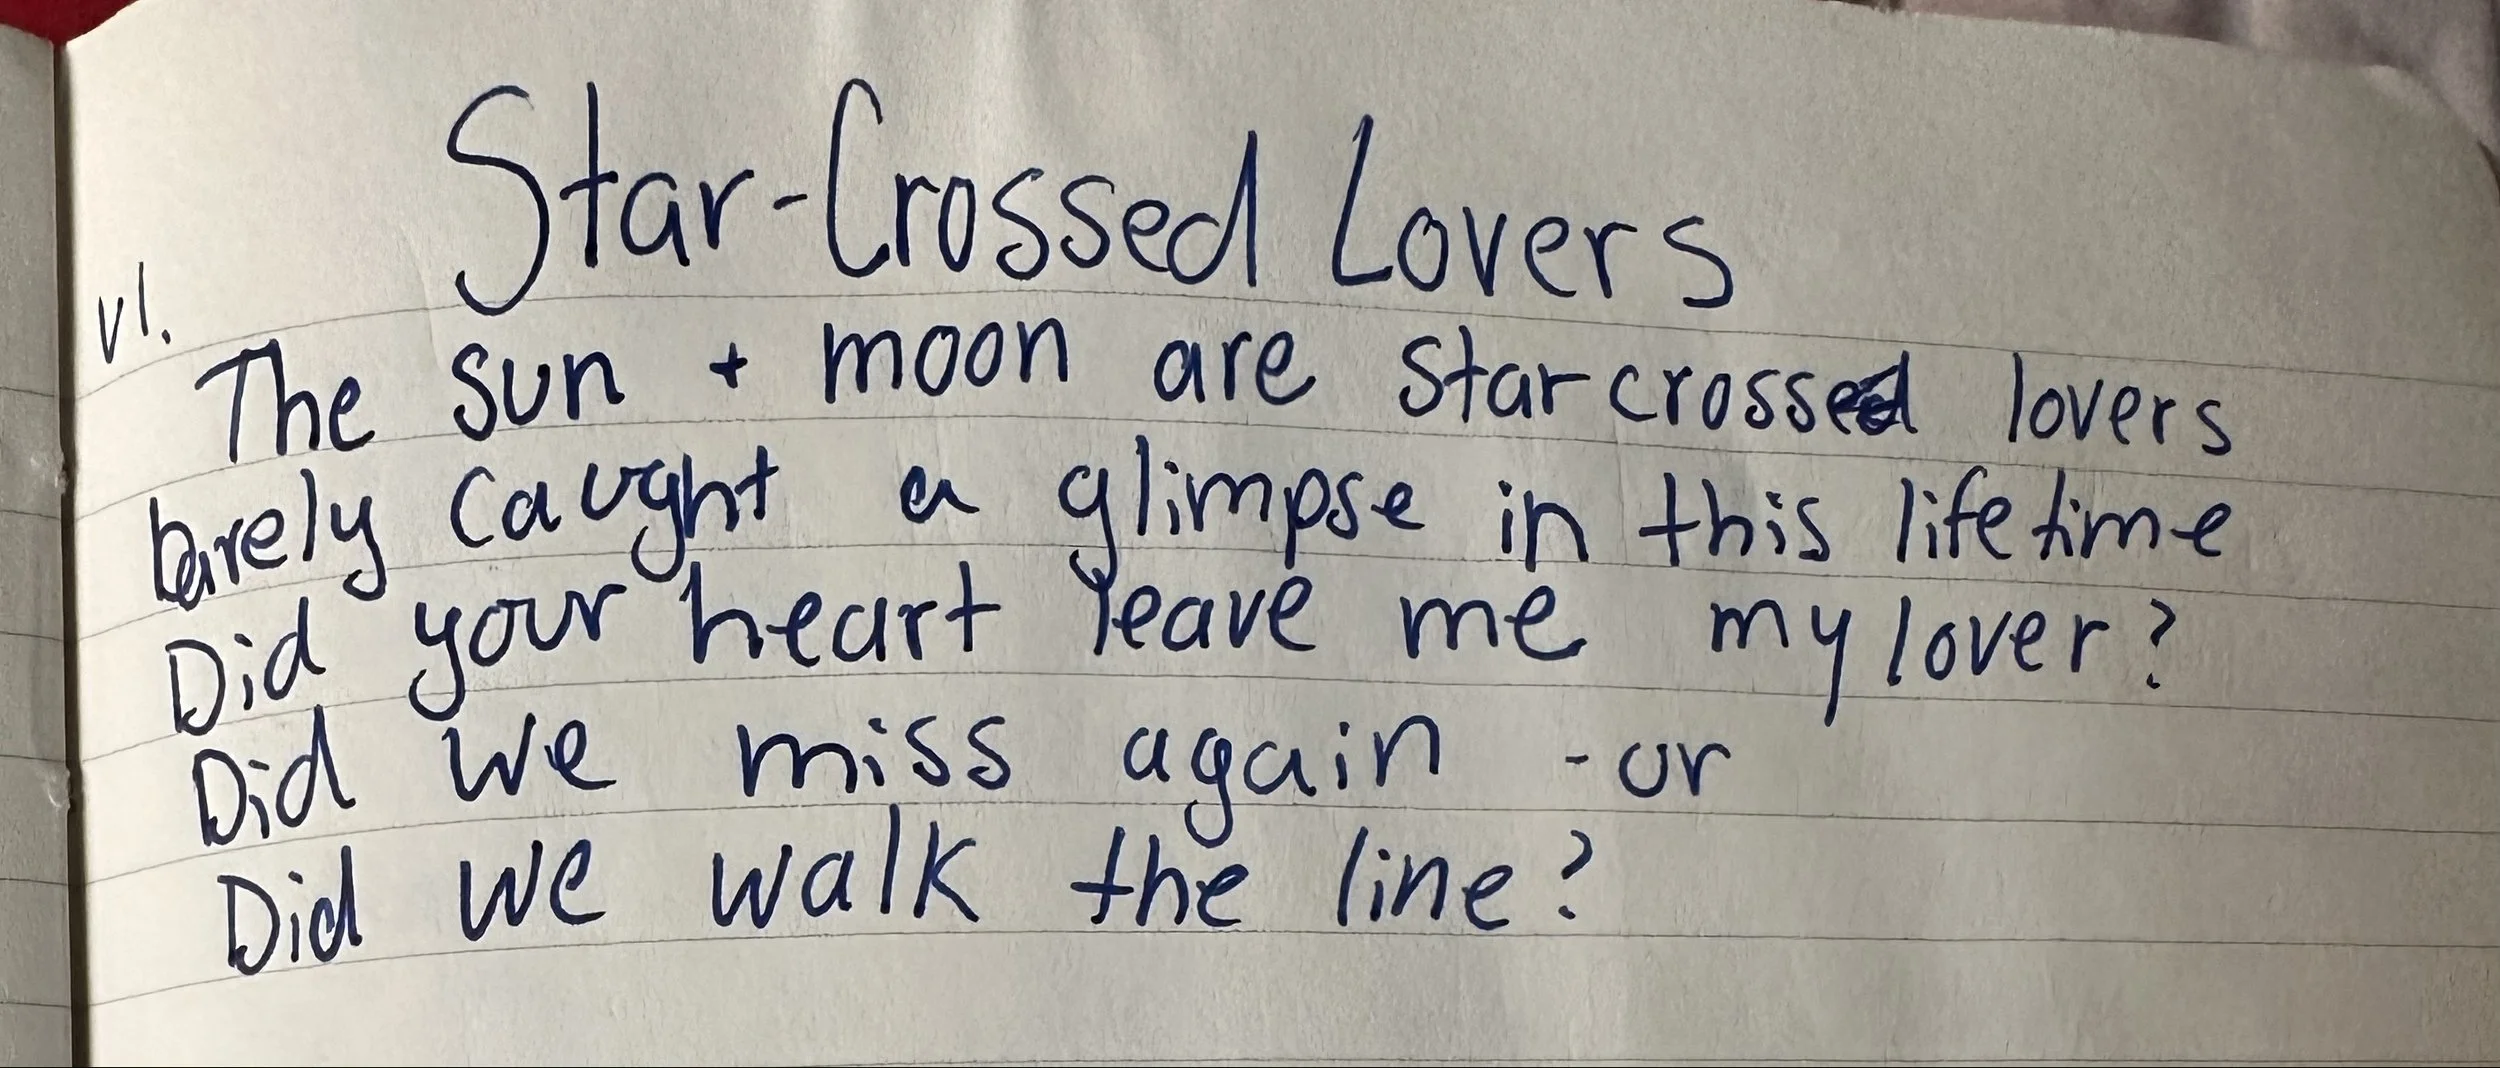 Star-Crossed Lovers
v1.
The sun + moon are starcrossed lovers
barely caught a glimpse in this lifetime
Did your heart leave me my lover?
Did we miss again - or
Did we walk the line?